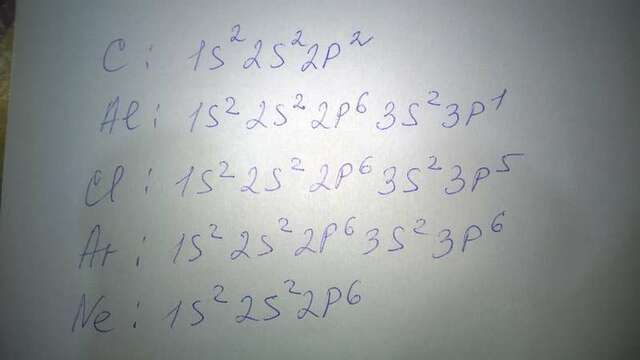 C: 1s² 2s² 2p²
Al: 1s² 2s² 2p⁶ 3s² 3p¹
Cl: 1s² 2s² 2p⁶ 3s² 3p⁵
Ar: 1s² 2s² 2p⁶ 3s² 3p⁶
Ne: 1s² 2s² 2p⁶